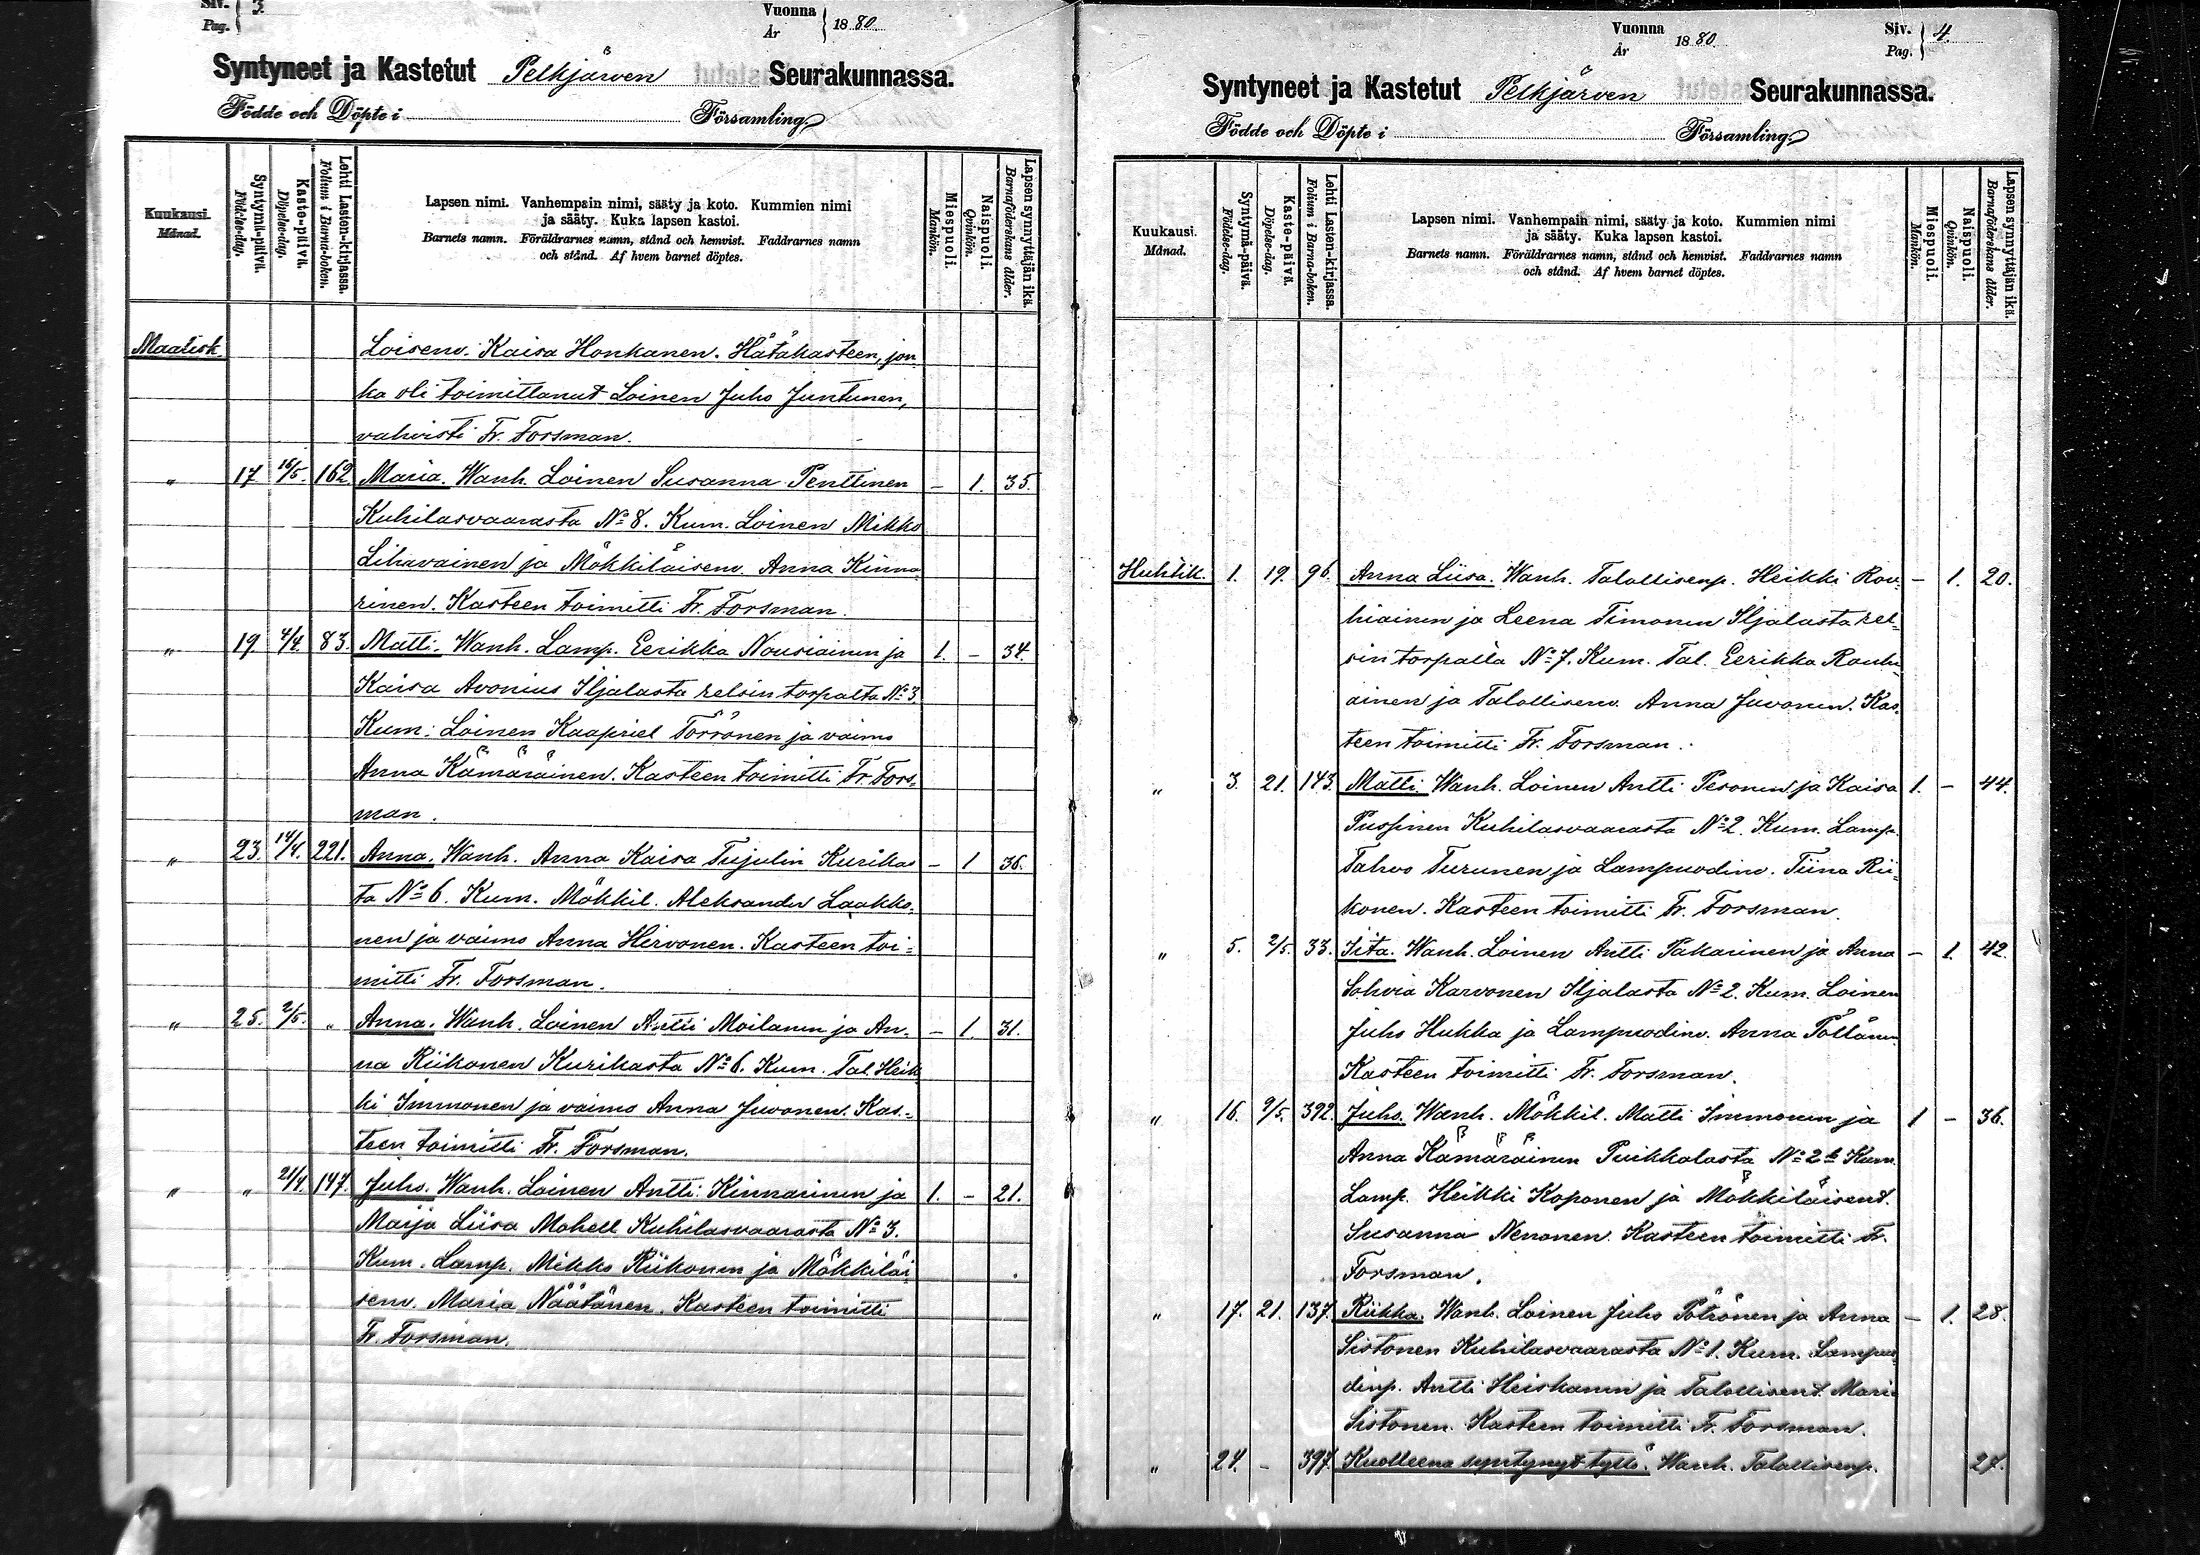 Siv. 3.
Pag.
Vuonna 1880.
År
Syntyneet ja Kastetut Pelkjärven Seurakunnassa.
Födde och Döpte i Församling.
Kuukausi.
Månad.
Syntymä-päivä.
Födelse-dag.
Kaste-päivä.
Döpelse-dag.
Lehti Lasten-kirjassa.
Folium i Barna-boken.
Lapsen nimi. Vanhempain nimi, sääty ja koto. Kummien nimi
ja sääty. Kuka lapsen kastoi.
Barnets namn. Föräldrarnes namn, stånd och hemvist. Faddrarnes namn
och stånd. Af hvem barnet döptes.
Miespuoli.
Mankön.
Naispuoli.
Qvinkön.
Lapsen synnyttäjän ikä.
Barnaföderskans ålder.
Maalisk. Loisenv. Kaisa Honkanen. Hätäkasteen, jon
ka oli toimittanut Loinen Juho Juntunen,
vahvisti Fr. Forsman.
" 17 16/5. 162. Maria. Wanh. Loinen Susanna Penttinen - 1. 35.
Kuhilasvaarasta No 8. Kum. Loinen Mikko
Lihavainen ja Mökkiläisenv. Anna Kinna
rinen. Kasteen toimitti Fr. Forsman.
" 19 4/4. 83. Matti. Wanh. Lamp. Eerikka Nousiainen ja 1. - 34.
Kaisa Avonius Iljalasta relsin torpalta No 3.
Kum: Loinen Kaapriel Törrönen ja vaimo
Anna Kämäräinen. Kasteen toimitti Fr. Fors-
man.
" 23. 14/4. 221. Anna. Wanh. Anna Kaisa Tujulin Kurikas - 1 36.
ta No 6. Kum. Mökkil. Aleksander Laakko-
nen ja vaimo Anna Hirvonen. Kasteen toi-
mitti Fr. Forsman.
" 25. 2/5. " Anna. Wanh. Loinen Antti Moilanen ja An- - 1. 31.
na Riikonen Kurikasta No 6. Kum. Tal. Heik
ki Immonen ja vaimo Anna Juvonen. Kas-
teen toimitti Fr. Forsman.
" " 21/4. 147. Juho. Wanh. Loinen Antti Kinnarinen ja 1. - 21.
Marja Liisa Mohell Kuhilasvaarasta No 3.
Kum. Lamp. Mikko Riikonen ja Mökkiläi
senv. Maria Näätänen. Kasteen toimitti
Fr. Forsman.
Vuonna 1880.
År
Siv. 4.
Pag.
Syntyneet ja Kastetut Pelkjärven Seurakunnassa.
Födde och Döpte i Församling.
Kuukausi.
Månad.
Syntymä-päivä.
Födelse-dag.
Kaste-päivä.
Döpelse-dag.
Lehti Lasten-kirjassa.
Folium i Barna-boken.
Lapsen nimi. Vanhempain nimi, sääty ja koto. Kummien nimi
ja sääty. Kuka lapsen kastoi.
Barnets namn. Föräldrarnes namn, stånd och hemvist. Faddrarnes namn
och stånd. Af hvem barnet döptes.
Miespuoli.
Mankön.
Naispuoli.
Qvinkön.
Lapsen synnyttäjän ikä.
Barnaföderskans ålder.
Huhtik. 1. 19. 96. Anna Liisa. Wanh. Talollisenp. Heikki Rou- - 1. 20.
hiainen ja Leena Timonen Iljalasta rel-
sin torpalta No 7. Kum. Tal. Eerikka Rouhi
ainen ja Talollisenv. Anna Juvonen. Kas-
teen toimitti Fr. Forsman.
" 3. 21. 143. Matti. Wanh. Loinen Antti Pesonen ja Kaisa 1. - 44.
Puspinen Kuhilasvaarasta No 2. Kum. Lamp.
Tahvo Turunen ja Lampuodinv. Tiina Rii-
konen. Kasteen toimitti Fr. Forsman.
" 5. 2/5. 33. Iita. Wanh. Loinen Antti Pakarinen ja Anna - 1. 42.
Sohvia Karvonen Iljalasta No 2. Kum. Loinen
Juho Hukka ja Lampuodinv. Anna Pöllänen.
Kasteen toimitti Fr. Forsman.
" 16. 9/5. 392. Juho. Wanh. Mökkil. Matti Immonen ja 1 - 36.
Anna Kämäräinen Puikkolasta No 2 b Kum.
Lamp. Heikki Koponen ja Mökkiläisent.
Susanna Nenonen. Kasteen toimitti Fr.
Forsman.
" 17. 21. 137. Riikka. Wanh. Loinen Juho Pötrönen ja Anna - 1. 28.
Sistonen Kuhilasvaarasta No 1. Kum. Lampuo
dinp. Antti Heiskanen ja Talollisent. Maria
Sistonen. Kasteen toimitti Fr. Forsman.
" 24. - 397. Kuolleena syntynyt tyttö. Wanh. Talollisenp. 27.